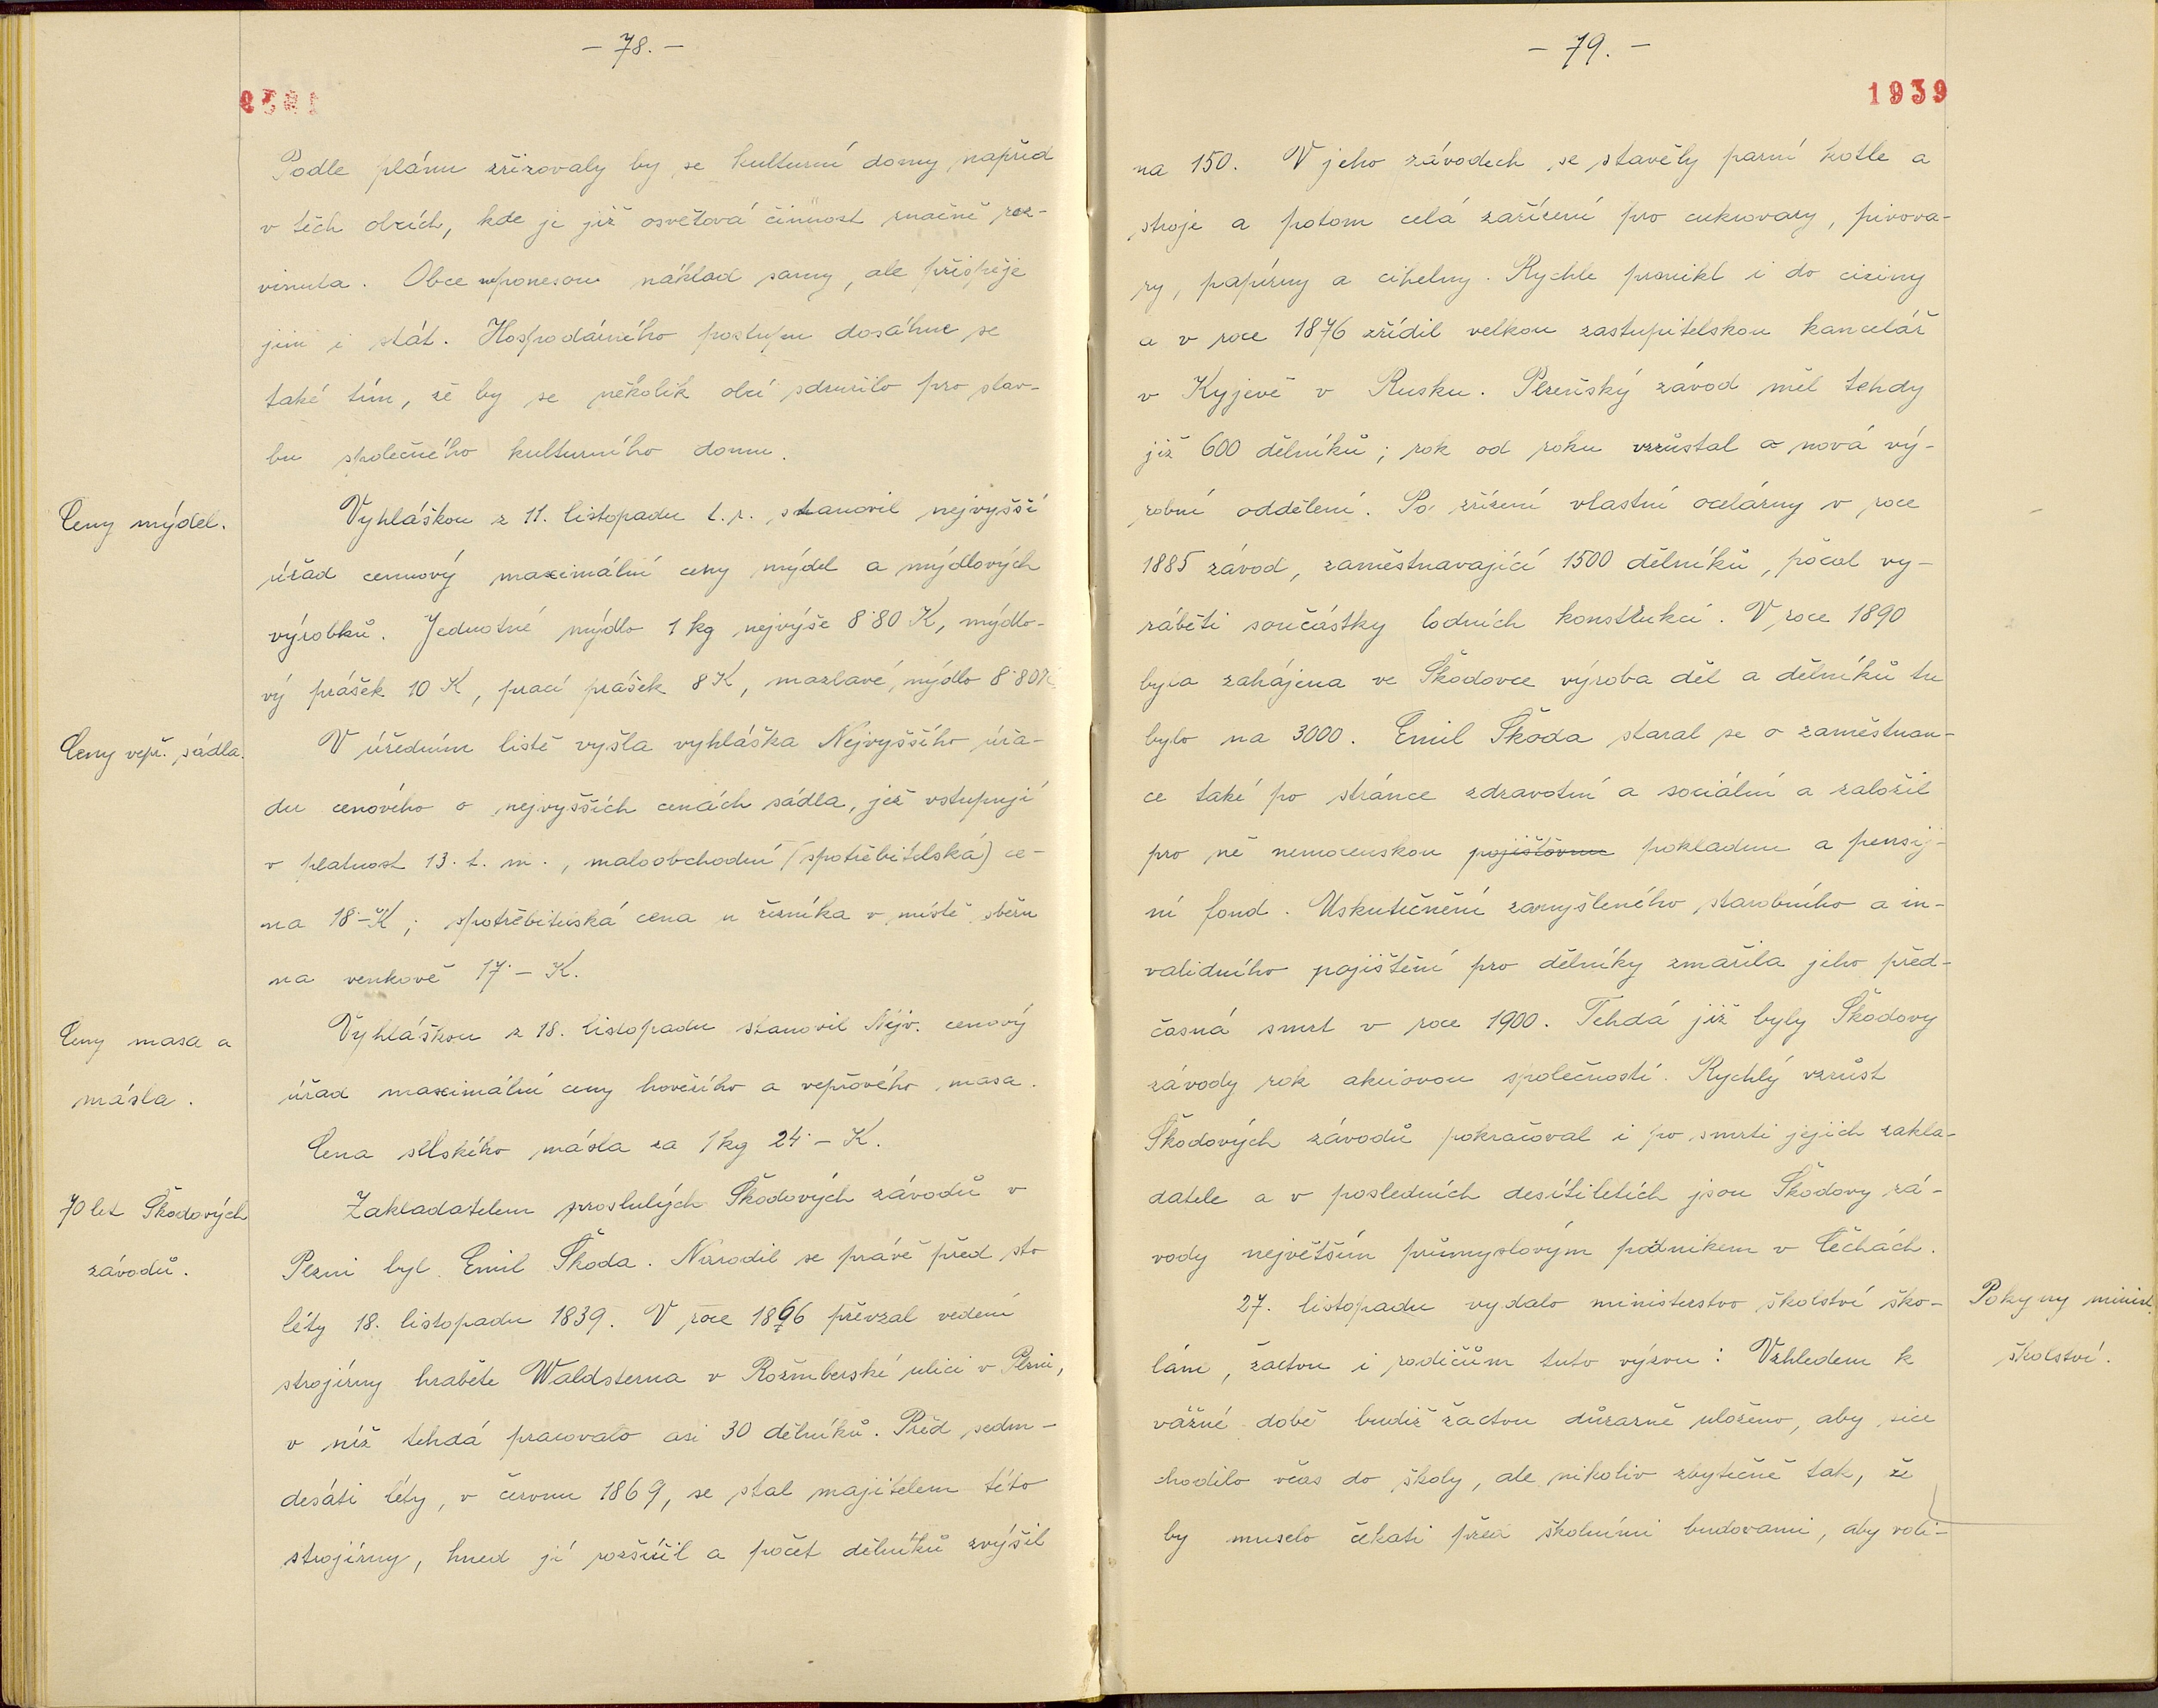 – 78. –
Podle plánu zřizovaly by se kulturní domy napřed
v těch obcích, kde je již osvětová činnost značně roz-
vinuta. Obce neponesou náklad samy, ale přispěje
jim i stát. Hospodárného postupu dosáhne se
také tím, že by se několik obcí sdružilo pro stav-
bu společného kulturního domu.
Ceny mýdel.
Vyhláškou z 11. listopadu t. r. stanovil nejvyšší
úřad cenový maximální ceny mýdel a mýdlových
výrobků. Jednotné mýdlo 1 kg nejvýše 8·80 K, mýdlo-
vý prášek 10 K, prací prášek 8 K, mazlavé mýdlo 8·80 K
Ceny vepř. sádla.
V úředním listě vyšla vyhláška Nejvyššího úřa-
du cenového o nejvyšších cenách sádla, jež vstupují
v platnost 13. t. m., maloobchodní (spotřebitelská) ce-
na 18·– K; spotřebitelská cena u řezníka v místě sběru
na venkově 17·– K.
Ceny masa a
másla.
Vyhláškou z 18. listopadu stanovil Nejv. cenový
úřad maximální ceny hovězího a vepřového masa.
Cena selského másla za 1 kg 24·– K.
70 let Škodových
závodů.
Zakladatelem proslulých Škodových závodů v
Plzni byl Emil Škoda. Narodil se právě před sto
léty 18. listopadu 1839. V roce 1866 převzal vedení
strojírny hraběte Waldsterna v Rožmberské ulici v Plzni,
v níž tehdá pracovalo asi 30 dělníků. Před sedm-
desáti léty, v červnu 1869, se stal majitelem této
strojírny, hned jí rozšířil a počet dělníků zvýšil
– 79. –
1939
na 150. V jeho závodech se stavěly parní kotle a
stroje a potom celá zařízení pro cukrovary, pivova-
ry, papírny a cihelny. Rychle pronikl i do ciziny
a v roce 1876 zřídil velkou zastupitelskou kancelář
v Kyjevě v Rusku. Plzeňský závod měl tehdy
již 600 dělníků; rok od roku vzrůstal o nová vý-
robní oddělení. Po zřízení vlastní ocelárny v roce
1885 závod, zaměstnavající 1500 dělníků, počal vy-
ráběti součástky lodních konstrukcí. V roce 1890
byla zahájena ve Škodovce výroba děl a dělníků tu
bylo na 3000. Emil Škoda staral se o zaměstnan-
ce také po stránce zdravotní a sociální a založil
pro ně nemocenskou pojišťovnu pokladnu a pensij-
ní fond. Uskutečnění zamyšleného starobního a in-
validního pojištění pro dělníky zmařila jeho před-
časná smrt v roce 1900. Tehdá již byly Škodovy
závody rok akciovou společností. Rychlý vzrůst
Škodových závodů pokračoval i po smrti jejich zakla-
datele a v posledních desítiletích jsou Škodovy zá-
vody největším průmyslovým podnikem v Čechách.
27. listopadu vydalo ministerstvo školství ško-
lám, žactvu i rodičům tuto výzvu: Vzhledem k
vážné době budiž žactvu důrazně uloženo, aby sice
chodilo včas do školy, ale nikoliv zbytečně tak, že
by muselo čekati před školními budovami, aby voli-
Pokyny minist.
školství.